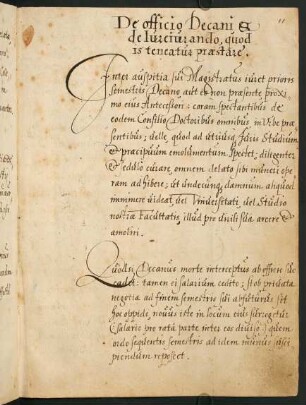 De officio Decani &
de Iureiurando, quod
is teneatur præstare.
Inter auspitia sui Magistratus iuret prioris
semestris Decano, aut eo non præsente proxi-
mo eius Antecessori: coram spectantibus de
eodem Consilio Doctoribus omnibus in Vrbe præ-
sentibus; velle, quod ad utriusq; Iuris Studium
& præcipuum emolumentum spectet, diligenter
& sedulo curare, omnem delato sibi muneri ope-
ram adhibere; ut undecunq; damnum, aliquod
imminere videat, vel Vniversitati, vel Studio
nostræ Facultatis, illud pro virili sua arcere &
amoliri.
Quod si Decanus, morte interceptus ab officio
cadet: tamen ei salarium cedito; si ob privata
negotia ad finem semestris sui abfuturus sit
hoc oppido, novus iste in locum eius surrogetur
& salario pro rata parte inter eos diviso,
ordo sequentis semestris ad idem munus
piendum reposcet.